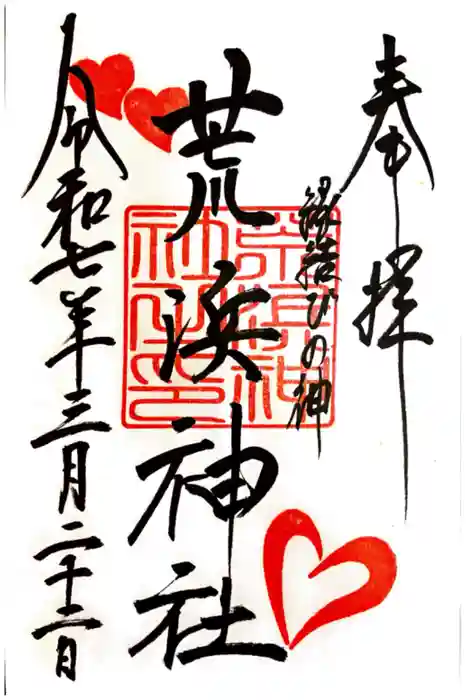 奉拝
縁結びの神
荒浜神社
荒浜神社之印
令和七年三月二十二日